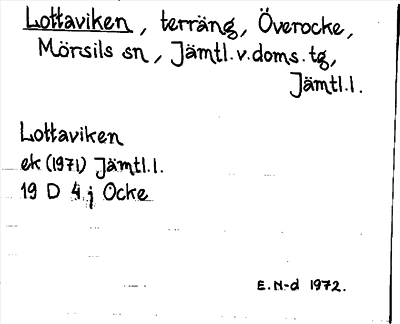 Lottaviken, terräng, Överocke,
Mörsils sn, Jämtl.v.doms.tg,
Jämtl.l.
Lottaviken
ek (1971) Jämtl.l.
19 D 4 j Ocke
E.N-d 1972.